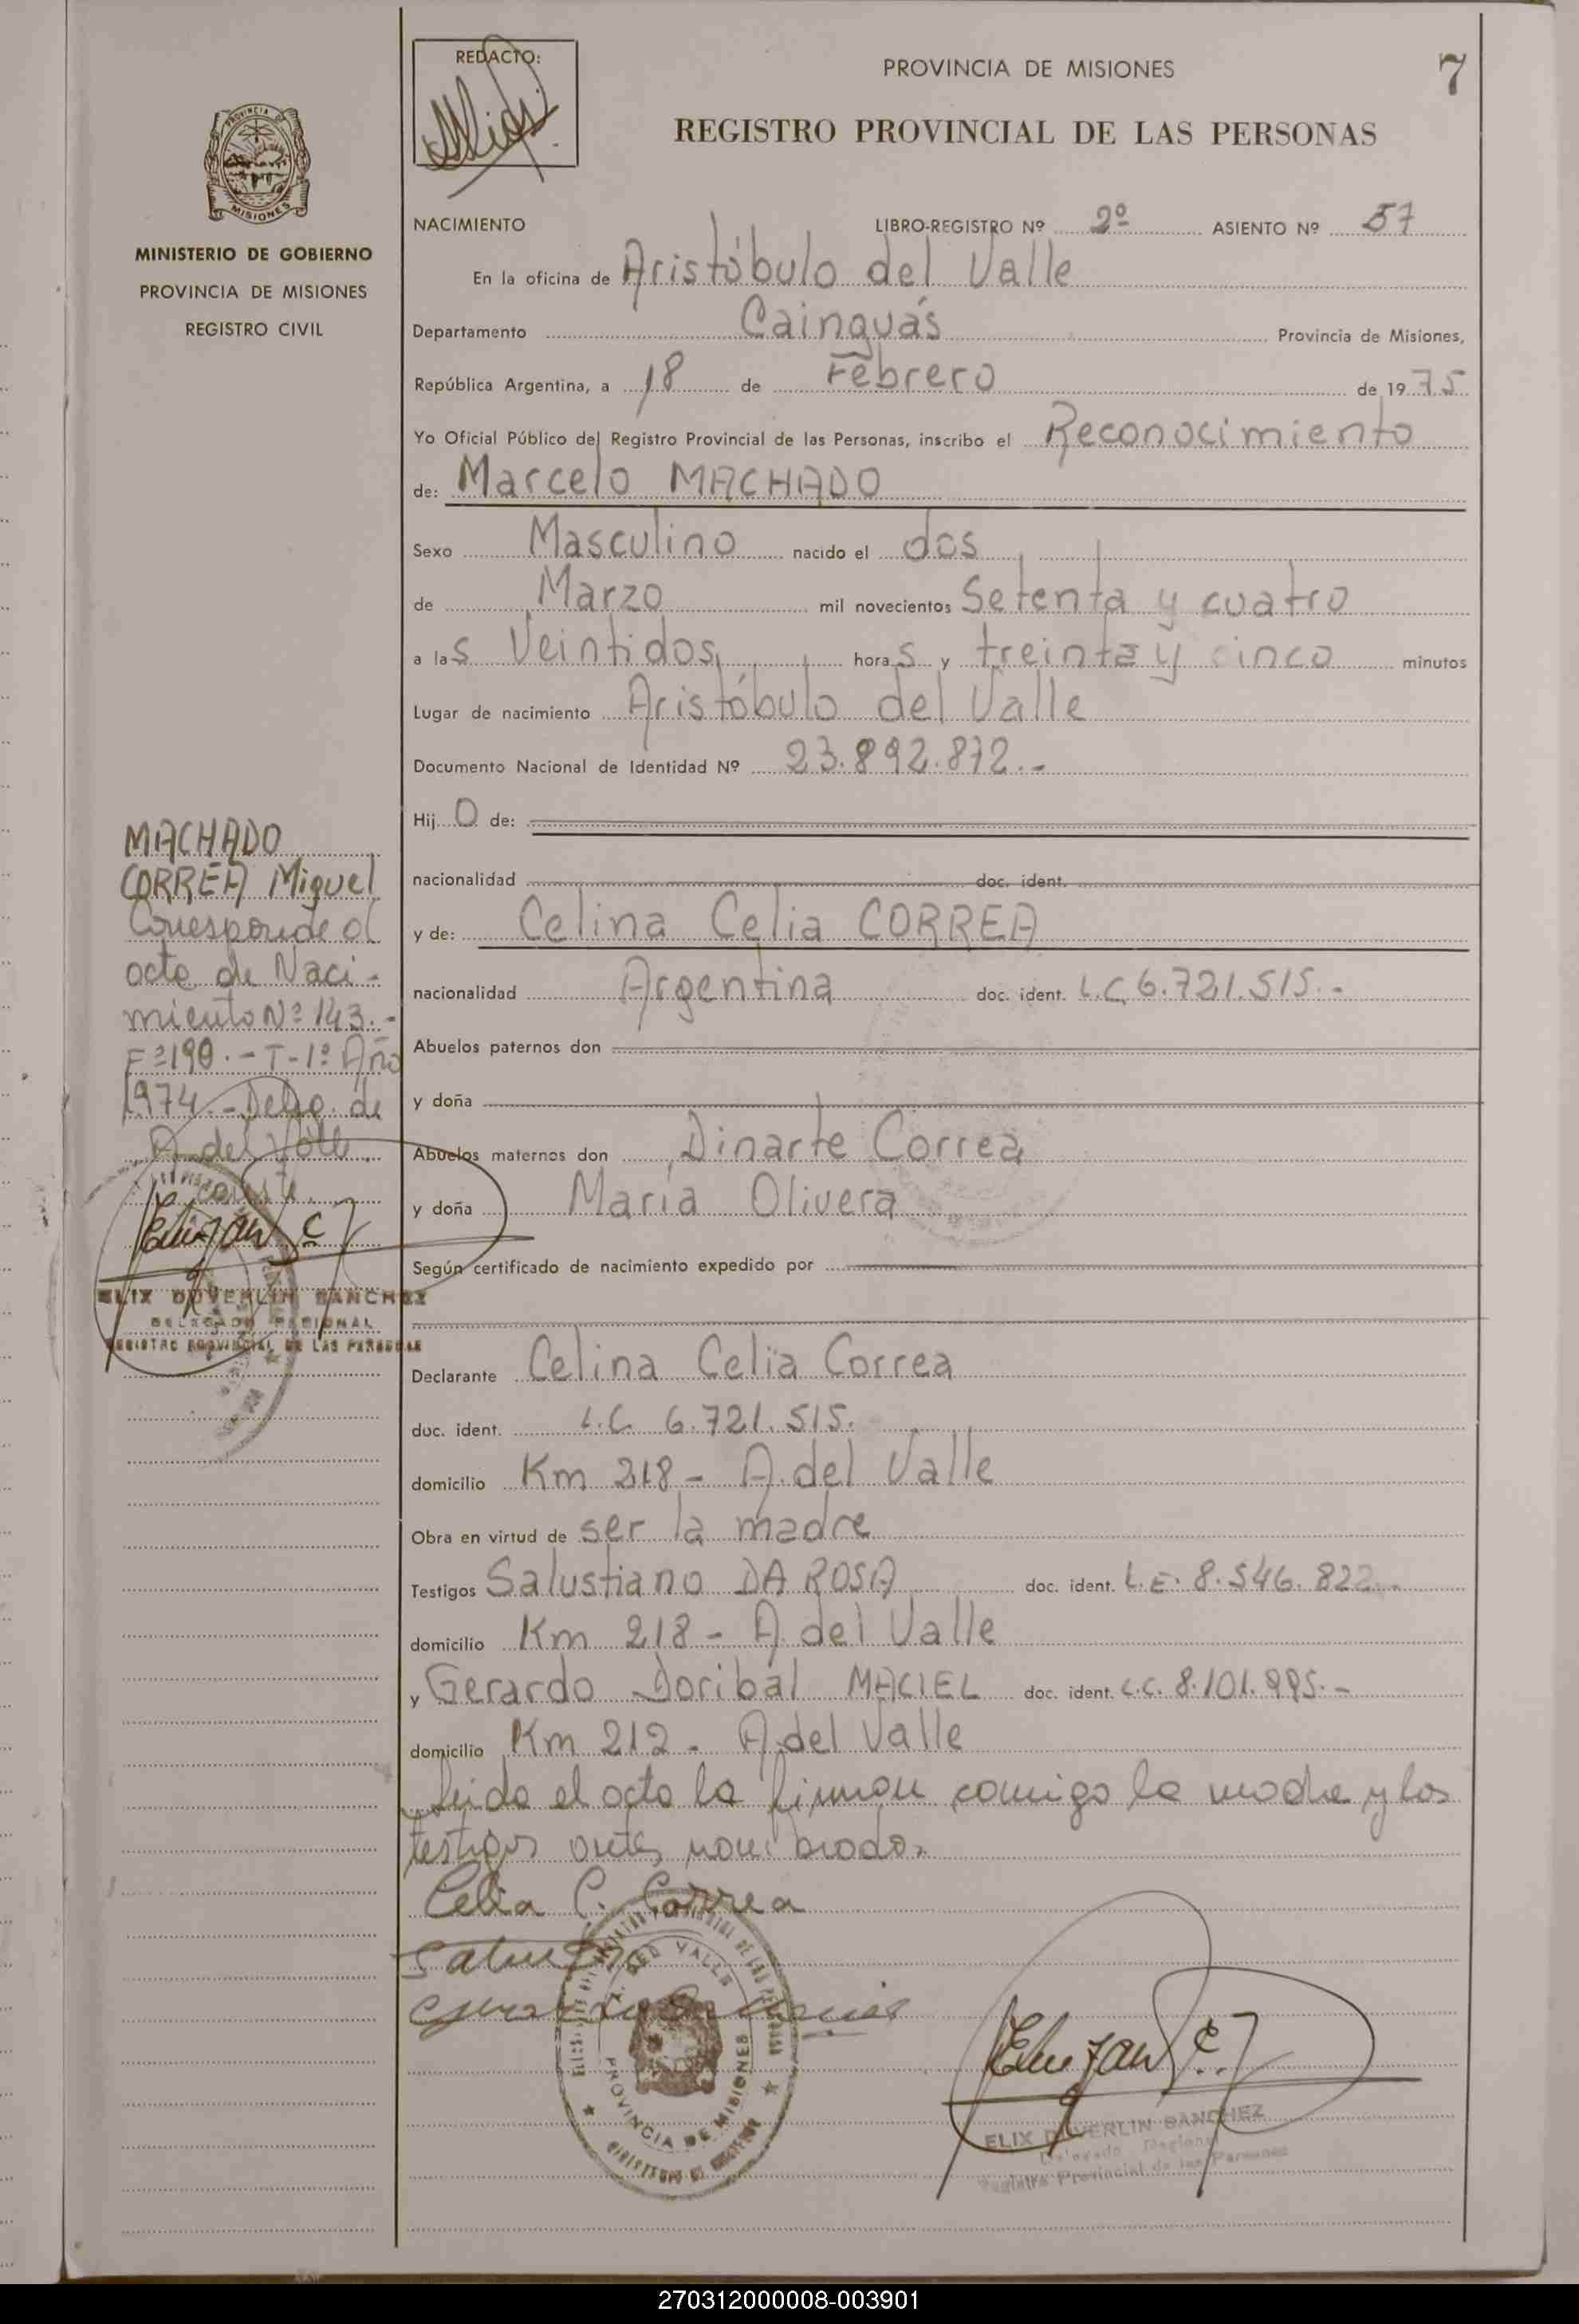 REDACTO:
PROVINCIA DE MISIONES
7
REGISTRO PROVINCIAL DE LAS PERSONAS
PROVINCIA DE
MISIONES
MINISTERIO DE GOBIERNO
PROVINCIA DE MISIONES
REGISTRO CIVIL
NACIMIENTO LIBRO-REGISTRO Nº 2º ASIENTO Nº 57
En la oficina de Aristóbulo del Valle
Departamento Cainguás Provincia de Misiones,
República Argentina, a 18 de Febrero de 1975
Yo Oficial Público del Registro Provincial de las Personas, inscribo el Reconocimiento
de: Marcelo MACHADO
Sexo Masculino nacido el dos
de Marzo mil novecientos Setenta y cuatro
a las Veintidos horas y treinta y cinco minutos
Lugar de nacimiento Aristóbulo del Valle
Documento Nacional de Identidad Nº 23.892.872.-
Hijo de:
nacionalidad doc. ident.
y de: Celina Celia CORREA
nacionalidad Argentina doc. ident. L.C. 6.721.515.-
Abuelos paternos don
y doña
Abuelos maternos don Dinarte Correa
y doña María Olivera
Según certificado de nacimiento expedido por
Declarante Celina Celia Correa
doc. ident. L.C. 6.721.515.
domicilio Km 218 - A. del Valle
Obra en virtud de ser la madre
Testigos Salustiano DA ROSA doc. ident. L.E. 8.546.822.-
domicilio Km 218 - A. del Valle
y Gerardo Doribal MACIEL doc. ident. L.C. 8.101.995.-
domicilio Km 212 - A. del Valle
Leida el acta la firman comigo la madre y los
testigos antes nombrados
Celia C. Correa
MACHADO
CORREA Miguel
Corresponde al
acta de Naci-
miento Nº 143.-
Fº 190.- T-1º Año
1974.- Deleg. de
A. del Valle.
ELIX DUVERLIN SANCHEZ
DELEGADO REGIONAL
REGISTRO PROVINCIAL DE LAS PERSONAS
DEL VALLE
PROVINCIA DE MISIONES
ELIX DUVERLIN SANCHEZ
Delegado Regional
Registro Provincial de las Personas
270312000008-003901